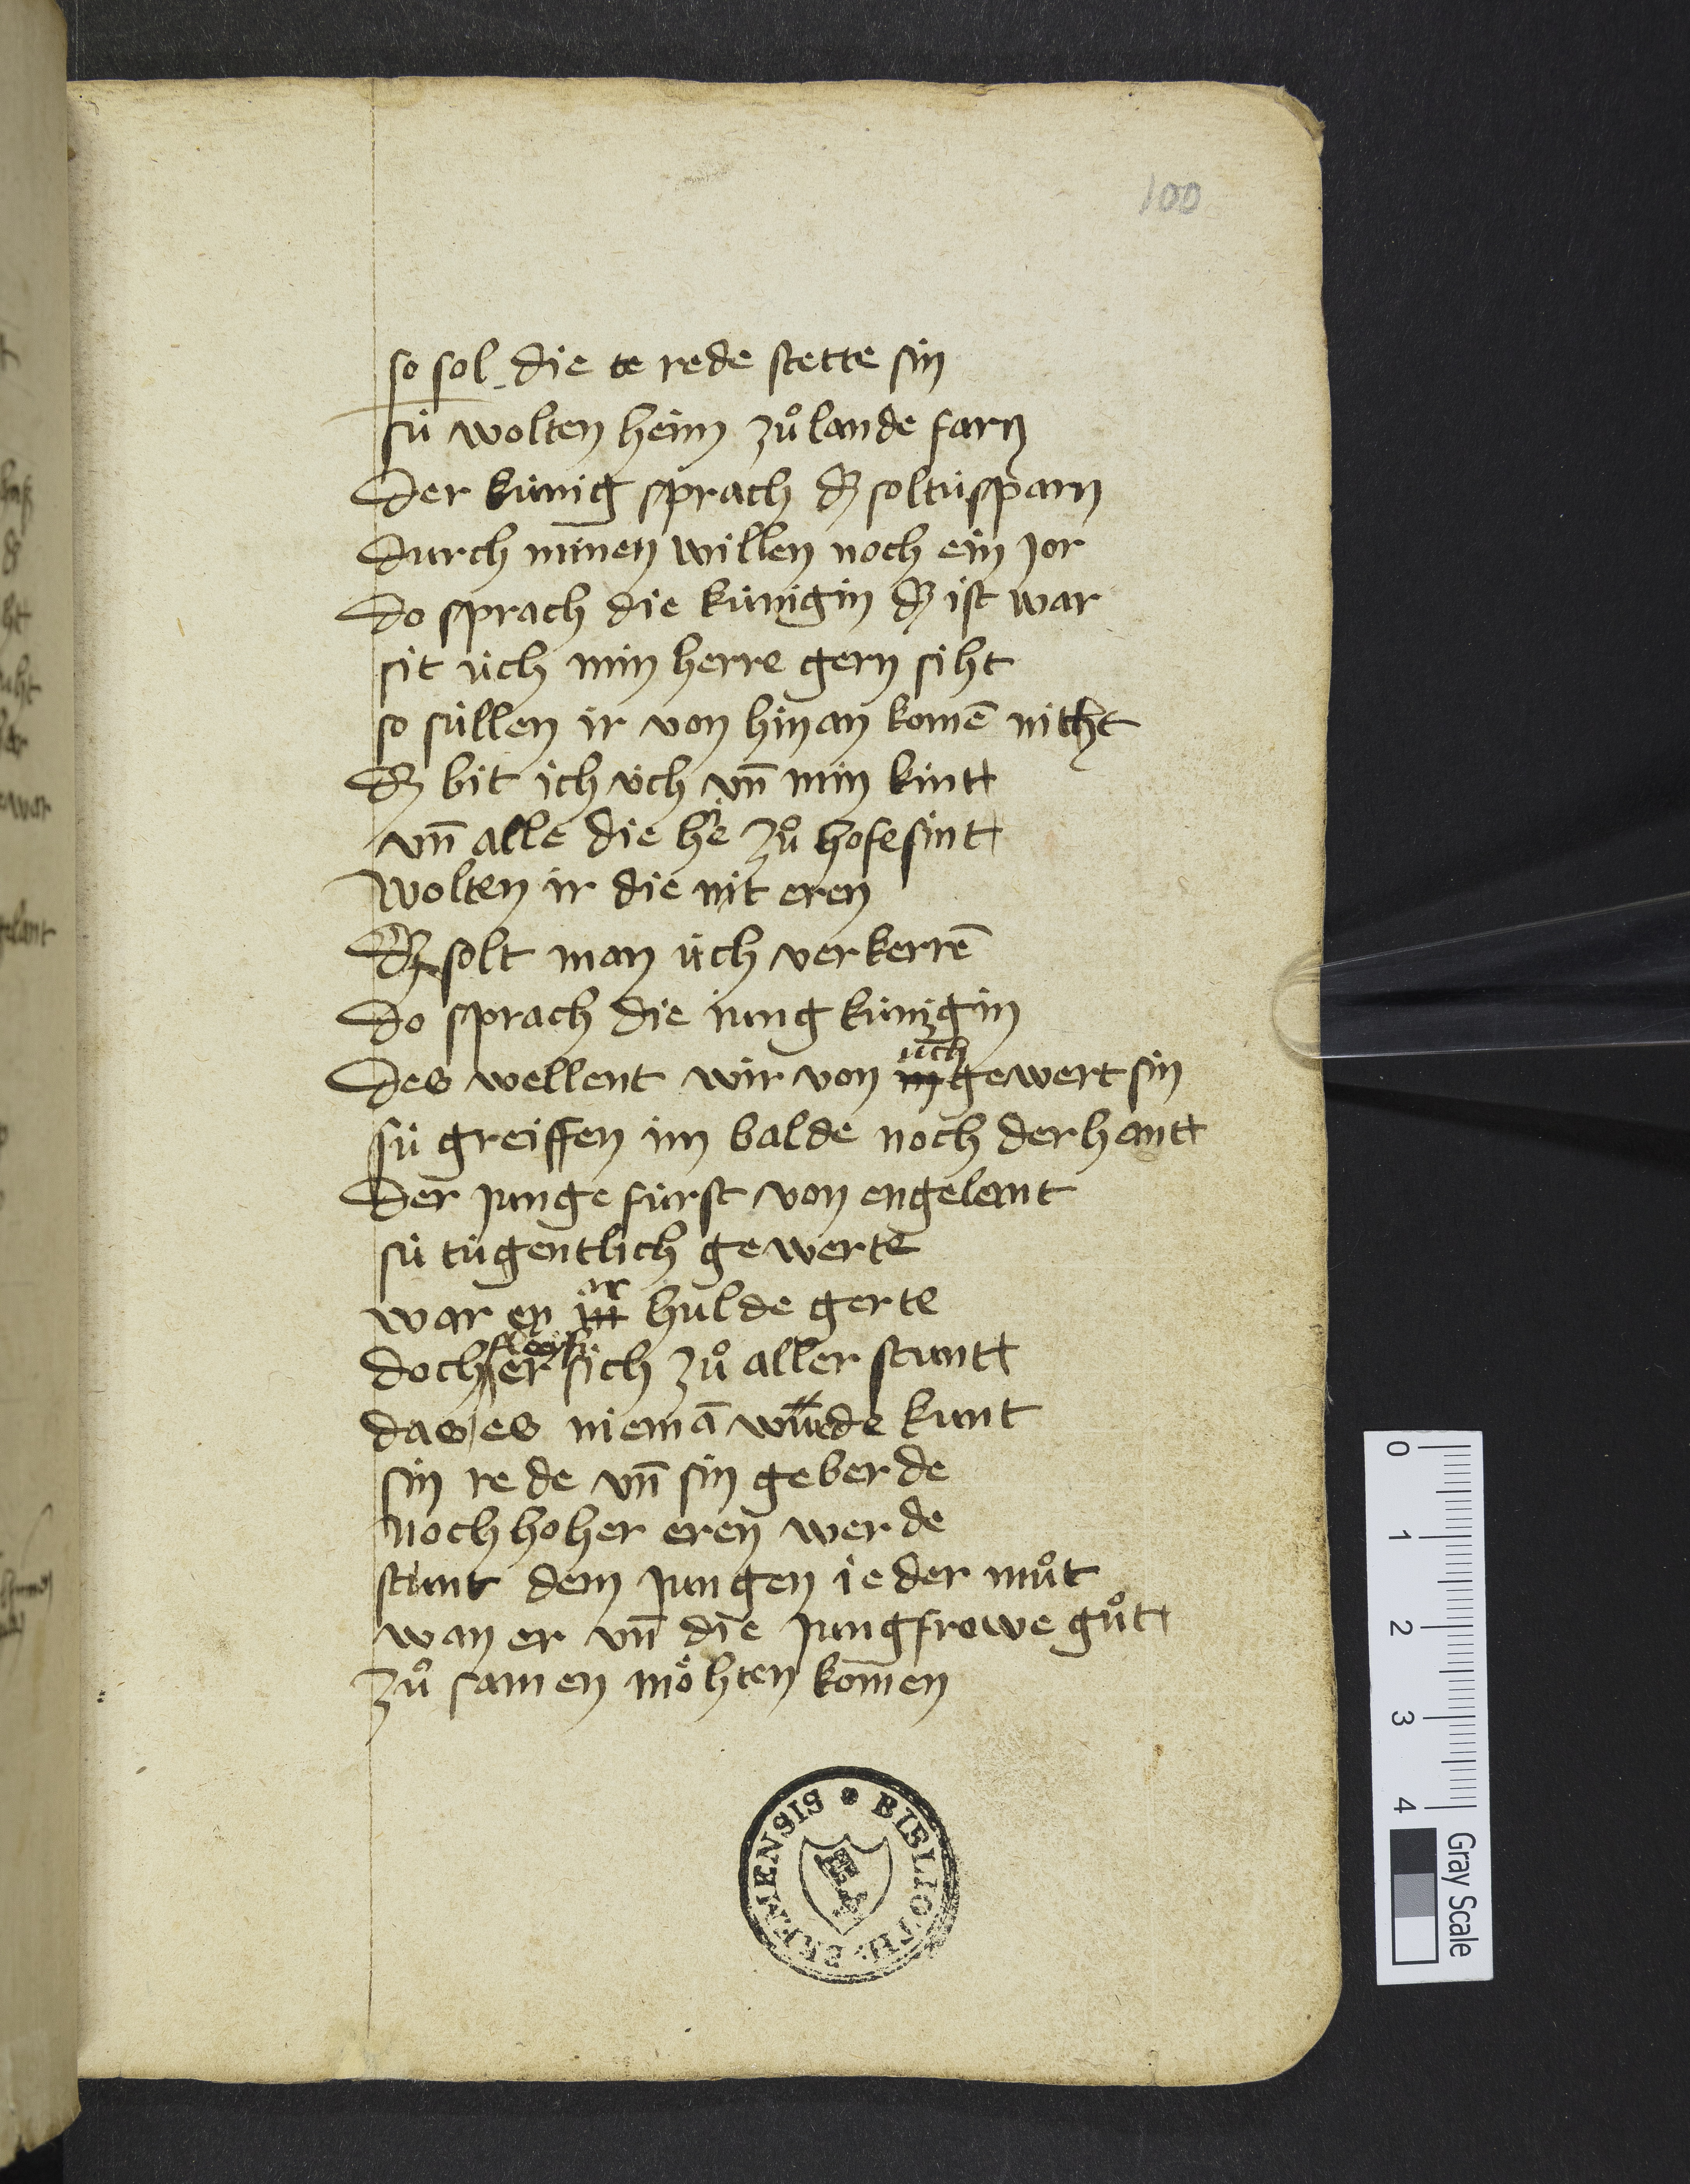 100
so sol die te rede stette sin
sú wolten heim zuͦ lande farn
Der kúnig sprach dz soltu sparn
Durch minen willen noch ein jor
Do sprach die kúnigin dz ist war
sit úch min herre gern siht
so súllen ir von hinan komē nitht
Dz bit ich úch vn̄ min kintt
vn̄ alle die hie zuͦ hofe sintt
wolten ir die nit eren
Dz solt man úch verkerrē
Do sprach die jung kúnigin
Des wellent wir von úch gewert sin
sú greiffen im balde noch der hantt
Der junge fúrst von engelant
sú túgentlich gewerte
war en ir hulde gerte
doch fleis er sich zuͦ aller stuntt
das es niemā wurde kunt
sin rede vn̄ sin geberde
noch hoher eren werde
stunt dem jungen ie der muͦt
wan er vn̄ die jungfrowe guͦtt
zuͦ samen möhten komen
BIBLIOTH. BERNENSIS
0
1
2
3
4
Gray Scale